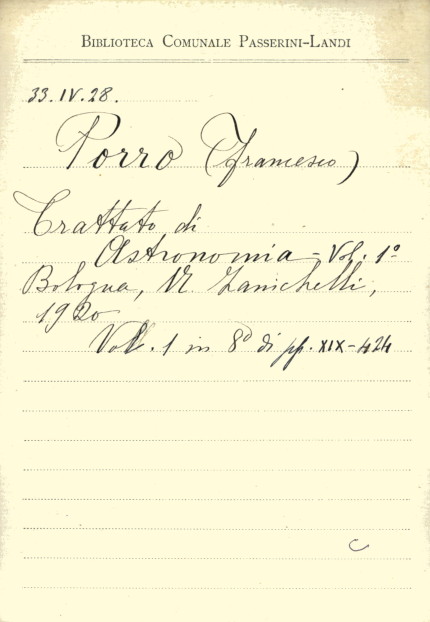 BIBLIOTECA COMUNALE PASSERINI-LANDI
33.IV.28.
Porro (Francesco)
Trattato di
Astronomia - Vol. 1º
Bologna, N. Zanichelli,
1920
Vol. 1 in 8º di pp. XIX-424
C